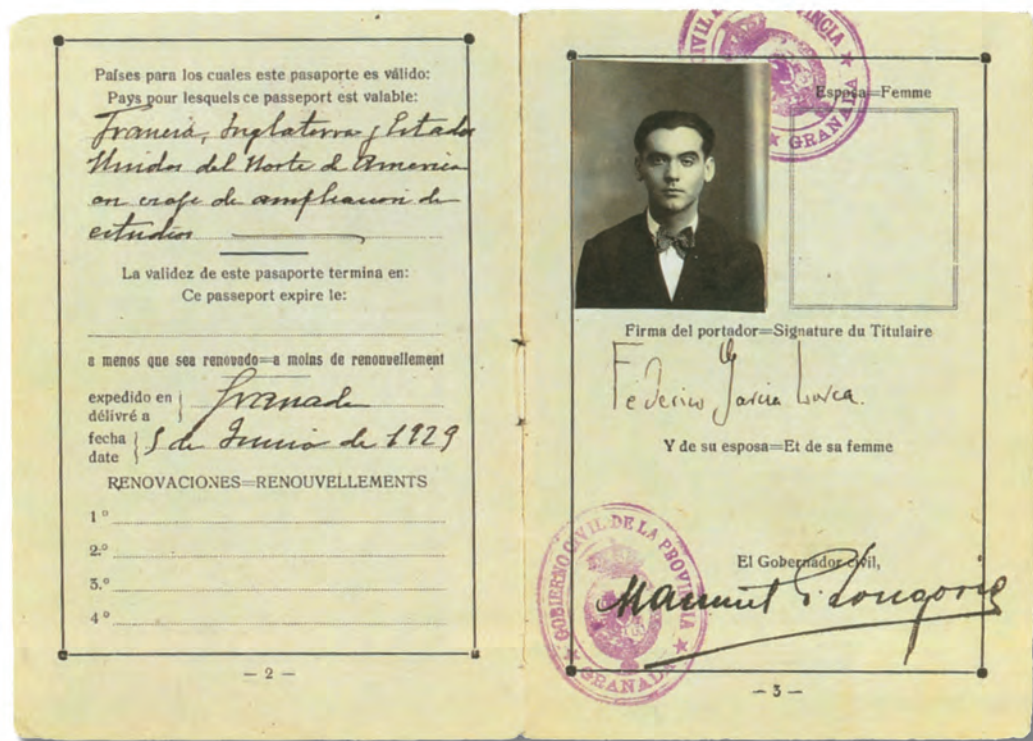 Países para los cuales este pasaporte es válido:
Pays pour lesquels ce passeport est valable:
Francia, Inglaterra y Estados
Unidos del Norte de America
en viaje de ampliacion de
estudios
La validez de este pasaporte termina en:
Ce passeport expire le:
a menos que sea renovado=a moins de renouvellement
expedido en
délivré a
Granada
fecha
date
5 de Junio de 1929
RENOVACIONES=RENOUVELLEMENTS
1º
2.º
3.º
4º
- 2 -
CIVIL DE LA PROVINCIA ★ GRANADA ★
Esposa=Femme
Firma del portador=Signature du Titulaire
Federico García Lorca.
Y de su esposa=Et de sa femme
GOBIERNO CIVIL DE LA PROVINCIA ★ GRANADA ★
El Gobernador civil,
Manuel
- 3 -